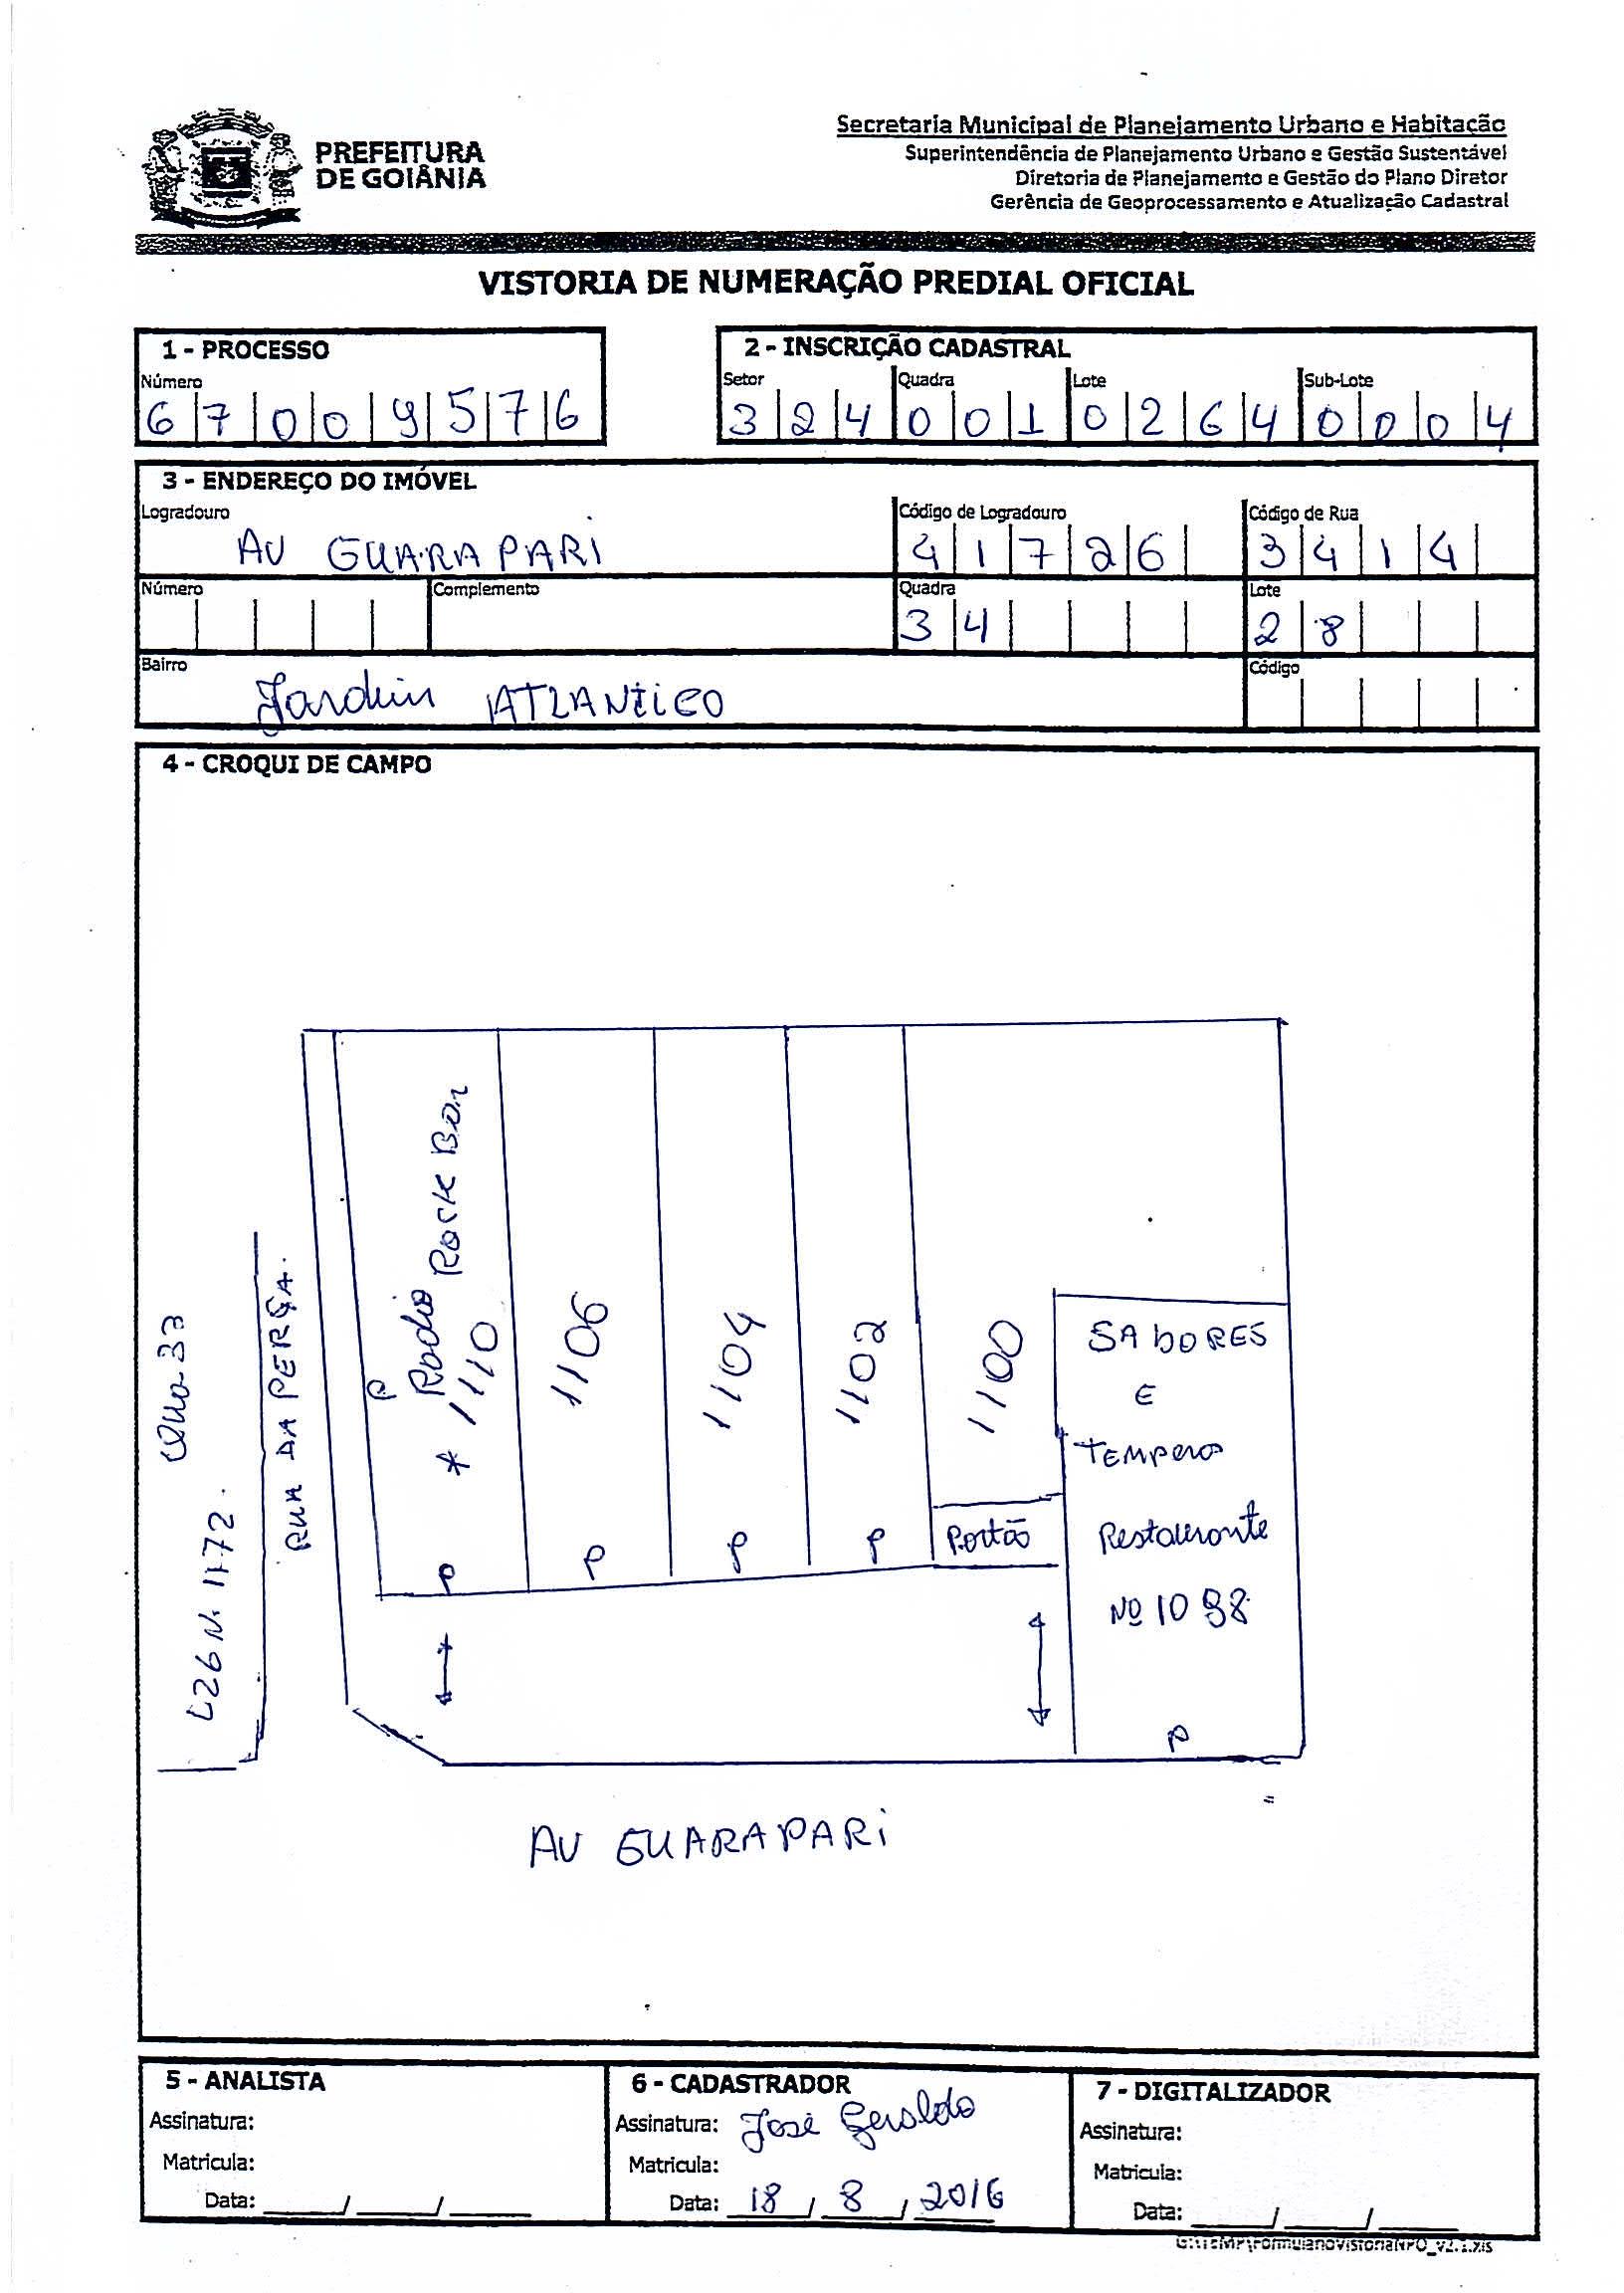 PREFEITURA
DE GOIÂNIA
Secretaria Municipal de Planejamento Urbano e Habitação
Superintendência de Planejamento Urbano e Gestão Sustentável
Diretoria de Planejamento e Gestão do Plano Diretor
Gerência de Geoprocessamento e Atualização Cadastral
VISTORIA DE NUMERAÇÃO PREDIAL OFICIAL
1 - PROCESSO
Número
6 7 0 0 9 5 7 6
2 - INSCRIÇÃO CADASTRAL
Setor Quadra Lote Sub-Lote
3 2 4 0 0 1 0 2 6 4 0 0 0 4
3 - ENDEREÇO DO IMÓVEL
Logradouro Código de Logradouro Código de Rua
AV GUARAPARI 4 1 7 2 6 3 4 1 4
Número Complemento Quadra Lote
3 4 2 8
Bairro Código
Jardim ATLANTICO
4 - CROQUI DE CAMPO
33
L26 N. 1172.
RUA DA PERÇA.
P
Radio Rock Bar
* 1110
P
1106
P
1104
P
1102
P
1100
Portão
SABORES
E
TEMPERO
Restaurante
Nº 1098
P
AV GUARAPARI
5 - ANALISTA
Assinatura:
Matricula:
Data: ____/____/____
6 - CADASTRADOR
Assinatura: José Geraldo
Matricula:
Data: 18 / 8 / 2016
7 - DIGITALIZADOR
Assinatura:
Matricula:
Data: ____/____/____
G:\TEMP\FormularioVistoriaNPO_v2.1.xls